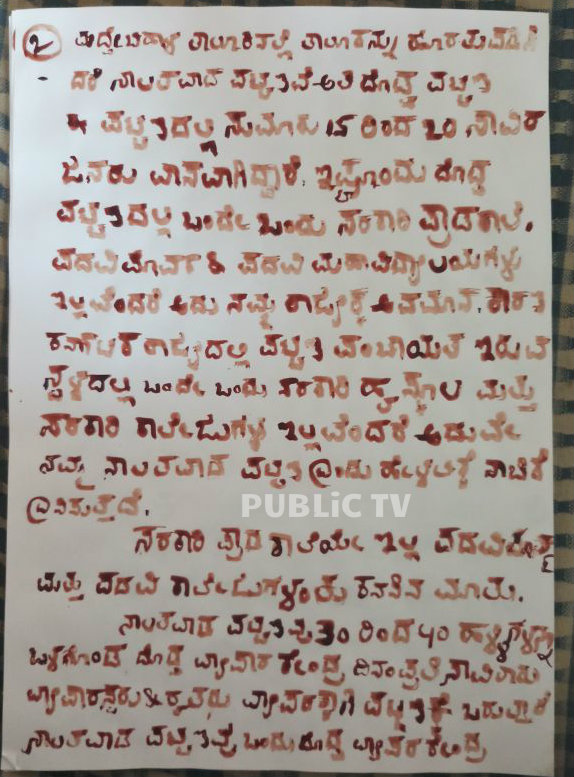 ೨ ಮುದ್ದೇಬಿಹಾಳ ತಾಲೂಕಿನಲ್ಲಿ ತಾಲೂಕನ್ನು ಹೊರತುಪಡಿಸಿ
ದರೆ ನಾಲತವಾಡ ಪಟ್ಟಣವೆ ಅತಿ ದೊಡ್ಡ ಪಟ್ಟಣ
ಈ ಪಟ್ಟಣದಲ್ಲಿ ಸುಮಾರು ೧೫ ರಿಂದ ೨೦ ಸಾವಿರ
ಜನರು ವಾಸವಾಗಿದ್ದಾರೆ. ಇಷ್ಟೊಂದು ದೊಡ್ಡ
ಪಟ್ಟಣದಲ್ಲಿ ಒಂದೇ ಒಂದು ಸರಕಾರಿ ಪ್ರೌಡಶಾಲೆ.
ಪದವಿ ಪೂರ್ವ & ಪದವಿ ಮಹಾವಿದ್ಯಾಲಯಗಳು
ಇಲ್ಲವೆಂದರೆ ಅದು ನಮ್ಮ ರಾಜ್ಯಕ್ಕೆ ಅವಮಾನ.
ಕರ್ನಾಟಕ ರಾಜ್ಯದಲ್ಲಿ ಪಟ್ಟಣ ಪಂಚಾಯತ ಇರುವ
ಸ್ಥಳದಲ್ಲಿ ಒಂದೇ ಒಂದು ಸರಕಾರಿ ಹೈಸ್ಕೂಲ ಮತ್ತು
ಸರಕಾರಿ ಕಾಲೇಜುಗಳು ಇಲ್ಲವೆಂದರೆ ಅದುವೇ
ನಮ್ಮ ನಾಲತವಾಡ ಪಟ್ಟಣ ಎಂದು ಹೇಳಲಿಕ್ಕೆ ನಾಚಿಕೆ
ಎನಿಸುತ್ತದೆ.
PUBLiC TV
ಸರಕಾರಿ ಪ್ರೌಡ ಶಾಲೆಯೇ ಇಲ್ಲ ಪದವಿಪೂರ್ವ
ಮತ್ತು ಪದವಿ ಕಾಲೇಜುಗಳಂತು ಕನಸಿನ ಮಾತು.
ನಾಲತವಾಡ ಪಟ್ಟಣವು ೩೦ ರಿಂದ ೪೦ ಹಳ್ಳಿಗಳನ್ನು
ಒಳಗೊಂಡ ದೊಡ್ಡ ವ್ಯಾಪಾರ ಕೇಂದ್ರ ದಿನಂಪ್ರತಿ ಸಾವಿರಾರು
ವ್ಯಾಪಾರಸ್ಥರು & ರೈತರು ವ್ಯಾಪಾರಕ್ಕಾಗಿ ಪಟ್ಟಣಕ್ಕೆ ಬರುತ್ತಾರೆ
ನಾಲತವಾಡ ಪಟ್ಟಣವು ಒಂದು ದೊಡ್ಡ ವ್ಯಾಪಾರ ಕೇಂದ್ರ